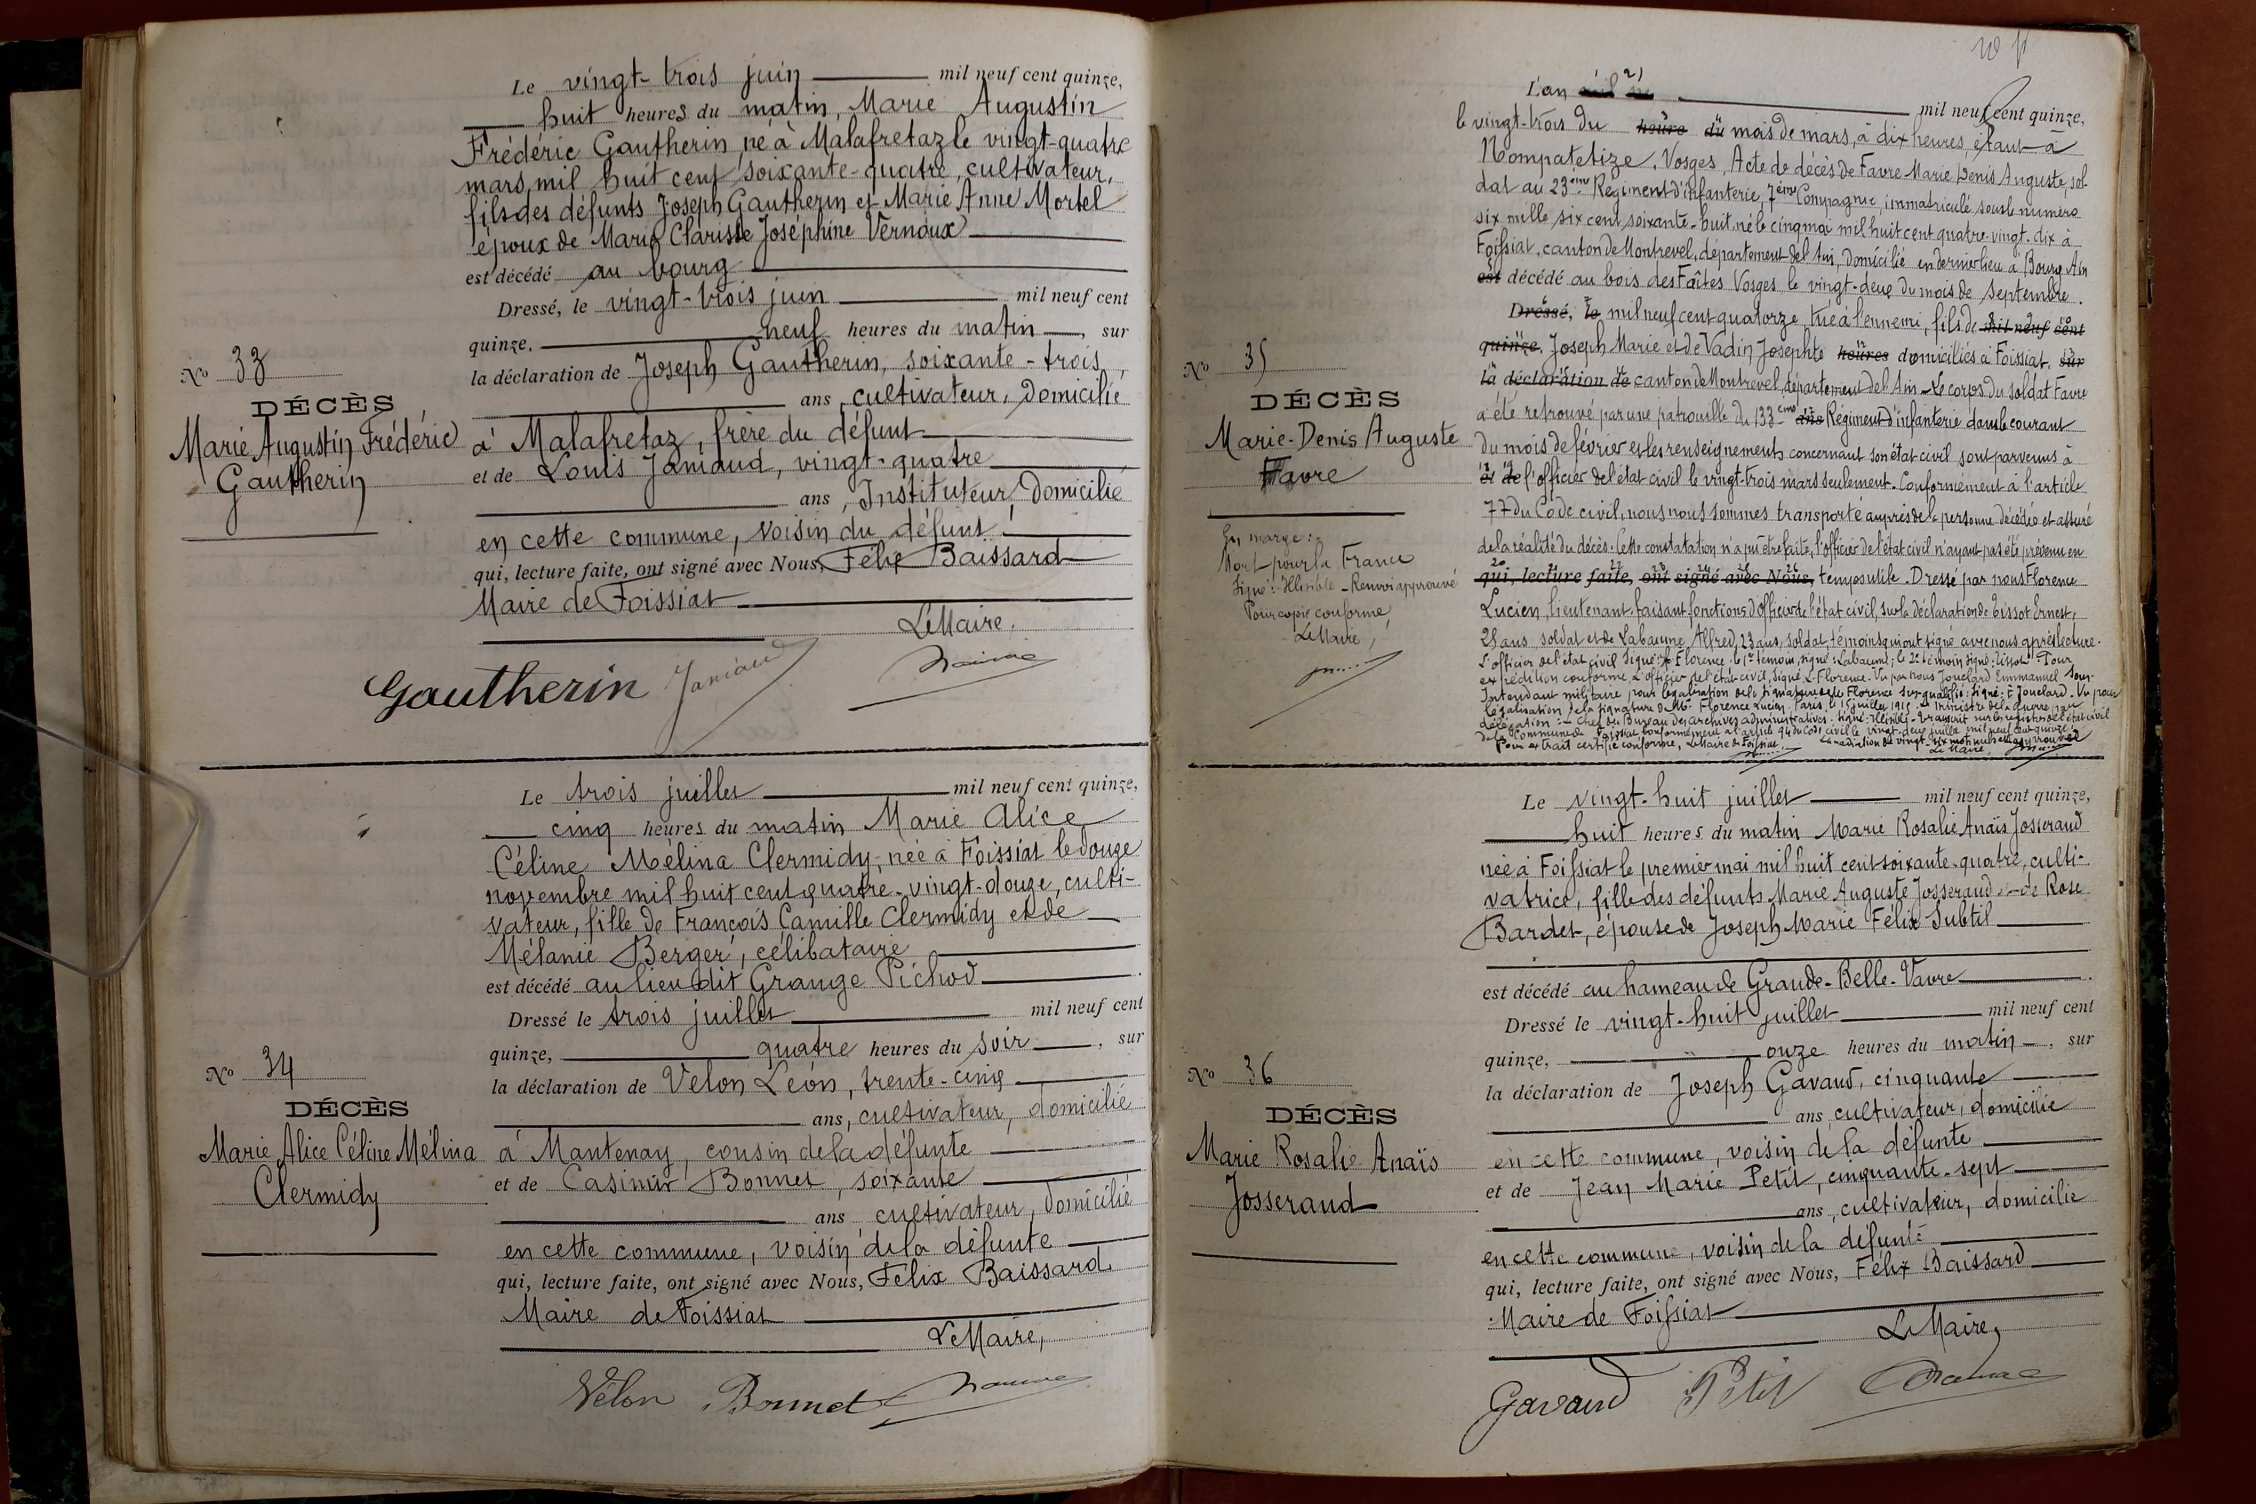 Le vingt-trois juin mil neuf cent quinze,
huit heures du matin, Marie Augustin
Frédéric Gautherin, né à Malafretaz le vingt-quatre
mars mil huit cent soixante-quatre, cultivateur,
fils des défunts Joseph Gautherin et Marie Anne Mortel
époux de Marie Clarisse Joséphine Vernoux
est décédé au bourg
Dressé, le vingt-trois juin mil neuf cent
quinze, neuf heures du matin, sur
la déclaration de Joseph Gautherin, soixante-trois
ans, cultivateur, domicilié
à Malafretaz, frère du défunt
et de Louis Janiaud, vingt-quatre
ans, Instituteur, domicilié
en cette commune, voisin du défunt
qui, lecture faite, ont signé avec Nous, Félix Baissard
Maire de Foissiat
Le Maire,
No 33
DÉCÈS
Marie Augustin Frédéric
Gautherin
Gautherin Janiaud
Le trois juillet mil neuf cent quinze,
cinq heures du matin Marie Alice
Céline Mélina Clermidy, née à Foissiat le douze
novembre mil huit cent quatre-vingt-douze, culti-
vateur, fille de François Camille Clermidy et de
Mélanie Berger, célibataire
est décédé au lieu dit Grange Pichod
Dressé le trois juillet mil neuf cent
quinze, quatre heures du soir, sur
la déclaration de Velon Léon, trente-cinq
ans, cultivateur, domicilié
à Mantenay, cousin de la défunte
et de Casimir Bonnet, soixante
ans cultivateur, domicilié
en cette commune, voisin de la défunte
qui, lecture faite, ont signé avec Nous, Félix Baissard
Maire de Foissiat
Le Maire,
No 34
DÉCÈS
Marie Alice Céline Mélina
Clermidy
Vélon Bonnet
L'an mil neuf cent quinze,
le vingt-trois du heure du mois de mars, à dix heures, étant à
Nompatelize, Vosges, Acte de décès de Favre Marie Denis Auguste, sol-
dat au 23ème Régiment d'infanterie, 7ème Compagnie, immatriculé sous le numéro
six mille six cent soixante-huit, né le cinq mai mil huit cent quatre-vingt-dix à
Foissiat, canton de Montrevel, département de l'Ain, domicilié en dernier lieu à Bourg Ain
est décédé au bois des Faîtes Vosges le vingt-deux du mois de septembre.
Dressé, le mil neuf cent quatorze, tué à l'ennemi, fils de mil neuf cent
quinze, Joseph Marie et de Vadin Josephte heures domiciliés à Foissiat, sur
la déclaration de canton de Montrevel, département de l'Ain. Le corps du soldat Favre
a été retrouvé par une patrouille du 133ème ans Régiment d'infanterie dans le courant
du mois de février et les renseignements concernant son état civil sont parvenus à
et de l'officier de l'état civil le vingt-trois mars seulement. Conformément à l'article
77 du Code civil, nous nous sommes transporté auprès de la personne décédée et assuré
de la réalité du décès. Cette constatation n'a pu être faite, l'officier de l'état civil n'ayant pas été prévenu en
qui, lecture faite, ont signé avec Nous, temps utile. Dressé par nous Florence
Lucien, lieutenant faisant fonctions d'officier de l'état civil, sur la déclaration de Tissot Ernest,
28 ans, soldat et de Labaume Alfred, 23 ans, soldat, témoins qui ont signé avec nous après lecture.
L'officier de l'état civil signé: Florence. le 1er témoin, signé: Labaume; le 2e témoin signé: Tissot. Pour
expédition conforme L'officier de l'état civil, signé L. Florence. Vu par nous Jouclard Emmanuel Sous-
Intendant militaire pour légalisation de la signature de Mr Florence sus-qualifié: signé: E Jouclard. Vu pour
légalisation de la signature de Mr Florence Lucien. Paris, le 15 juillet 1915. Le Ministre de la guerre par
délégation: Le Chef du Bureau des archives administratives. signé: illisible. Transcrit sur les registres de l'état civil
de la Commune de Foissiat conformément à l'article 94 du Code civil le vingt-deux juillet mil neuf cent quinze.
Pour extrait certifié conforme, Le Maire de Foissiat. La radiation de vingt-six mots nuls est approuvée
Le Maire
No 35
DÉCÈS
Marie-Denis Auguste
Favre
En marge:
Mort pour la France
Signé: Illisible - Renvoi approuvé
Pour copie conforme,
Le Maire,
Le vingt-huit juillet mil neuf cent quinze,
huit heures du matin Marie Rosalie Anaïs Josserand
née à Foissiat le premier mai mil huit cent soixante-quatre, culti-
vatrice, fille des défunts Marie Auguste Josserand et de Rose
Bardet, épouse de Joseph Marie Félix Subtil
est décédé au hameau de Grande-Belle-Vavre
Dressé le vingt-huit juillet mil neuf cent
quinze, onze heures du matin, sur
la déclaration de Joseph Gavand, cinquante
ans, cultivateur, domicilié
en cette commune, voisin de la défunte
et de Jean Marie Petit, cinquante-sept
ans, cultivateur, domicilié
en cette commune, voisin de la défunte
qui, lecture faite, ont signé avec Nous, Félix Baissard
Maire de Foissiat
Le Maire,
No 36
DÉCÈS
Marie Rosalie Anaïs
Josserand
Gavand Petit